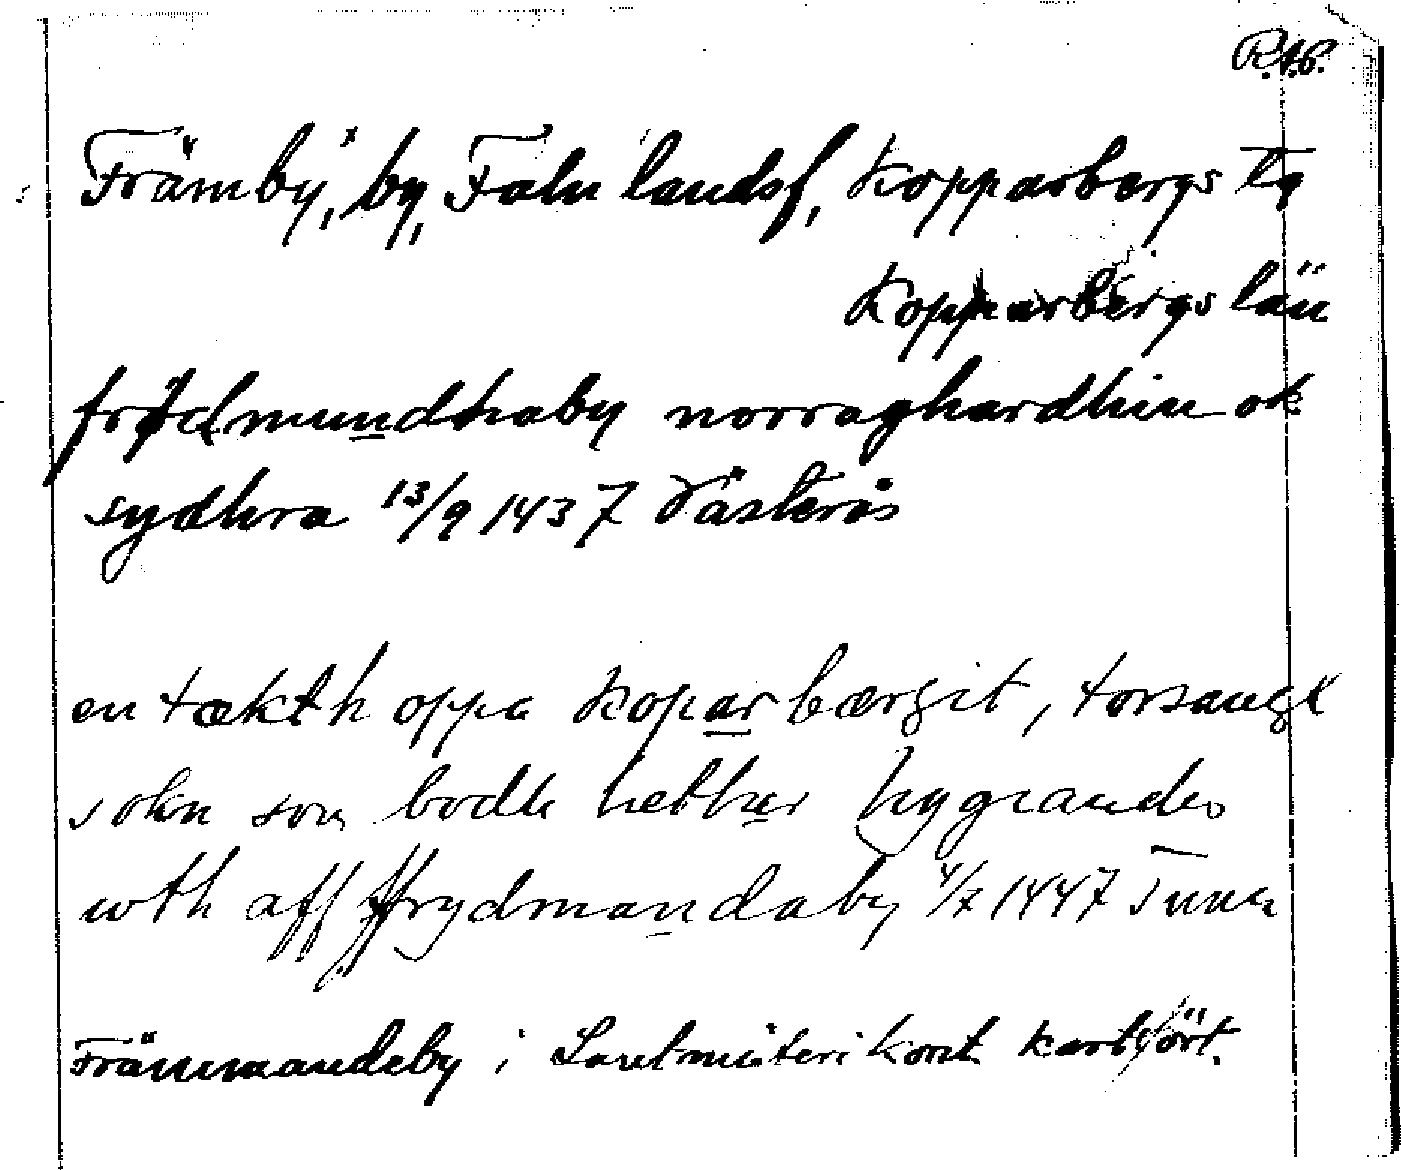 R.A.P.
Främby, by, Falu landsf, Kopparbergs tg
Kopparbergs län
frødmundhaby norraghardhin ok
sydhra 13/9 1437 Västerås
en tækth oppa koparbærgit, torsangx
sokn som bodh hethær hygiandis
wth aff ffrydmandaby 4/7 1447 Tuna
Främmandeby i Lantmäterikont kartfört.